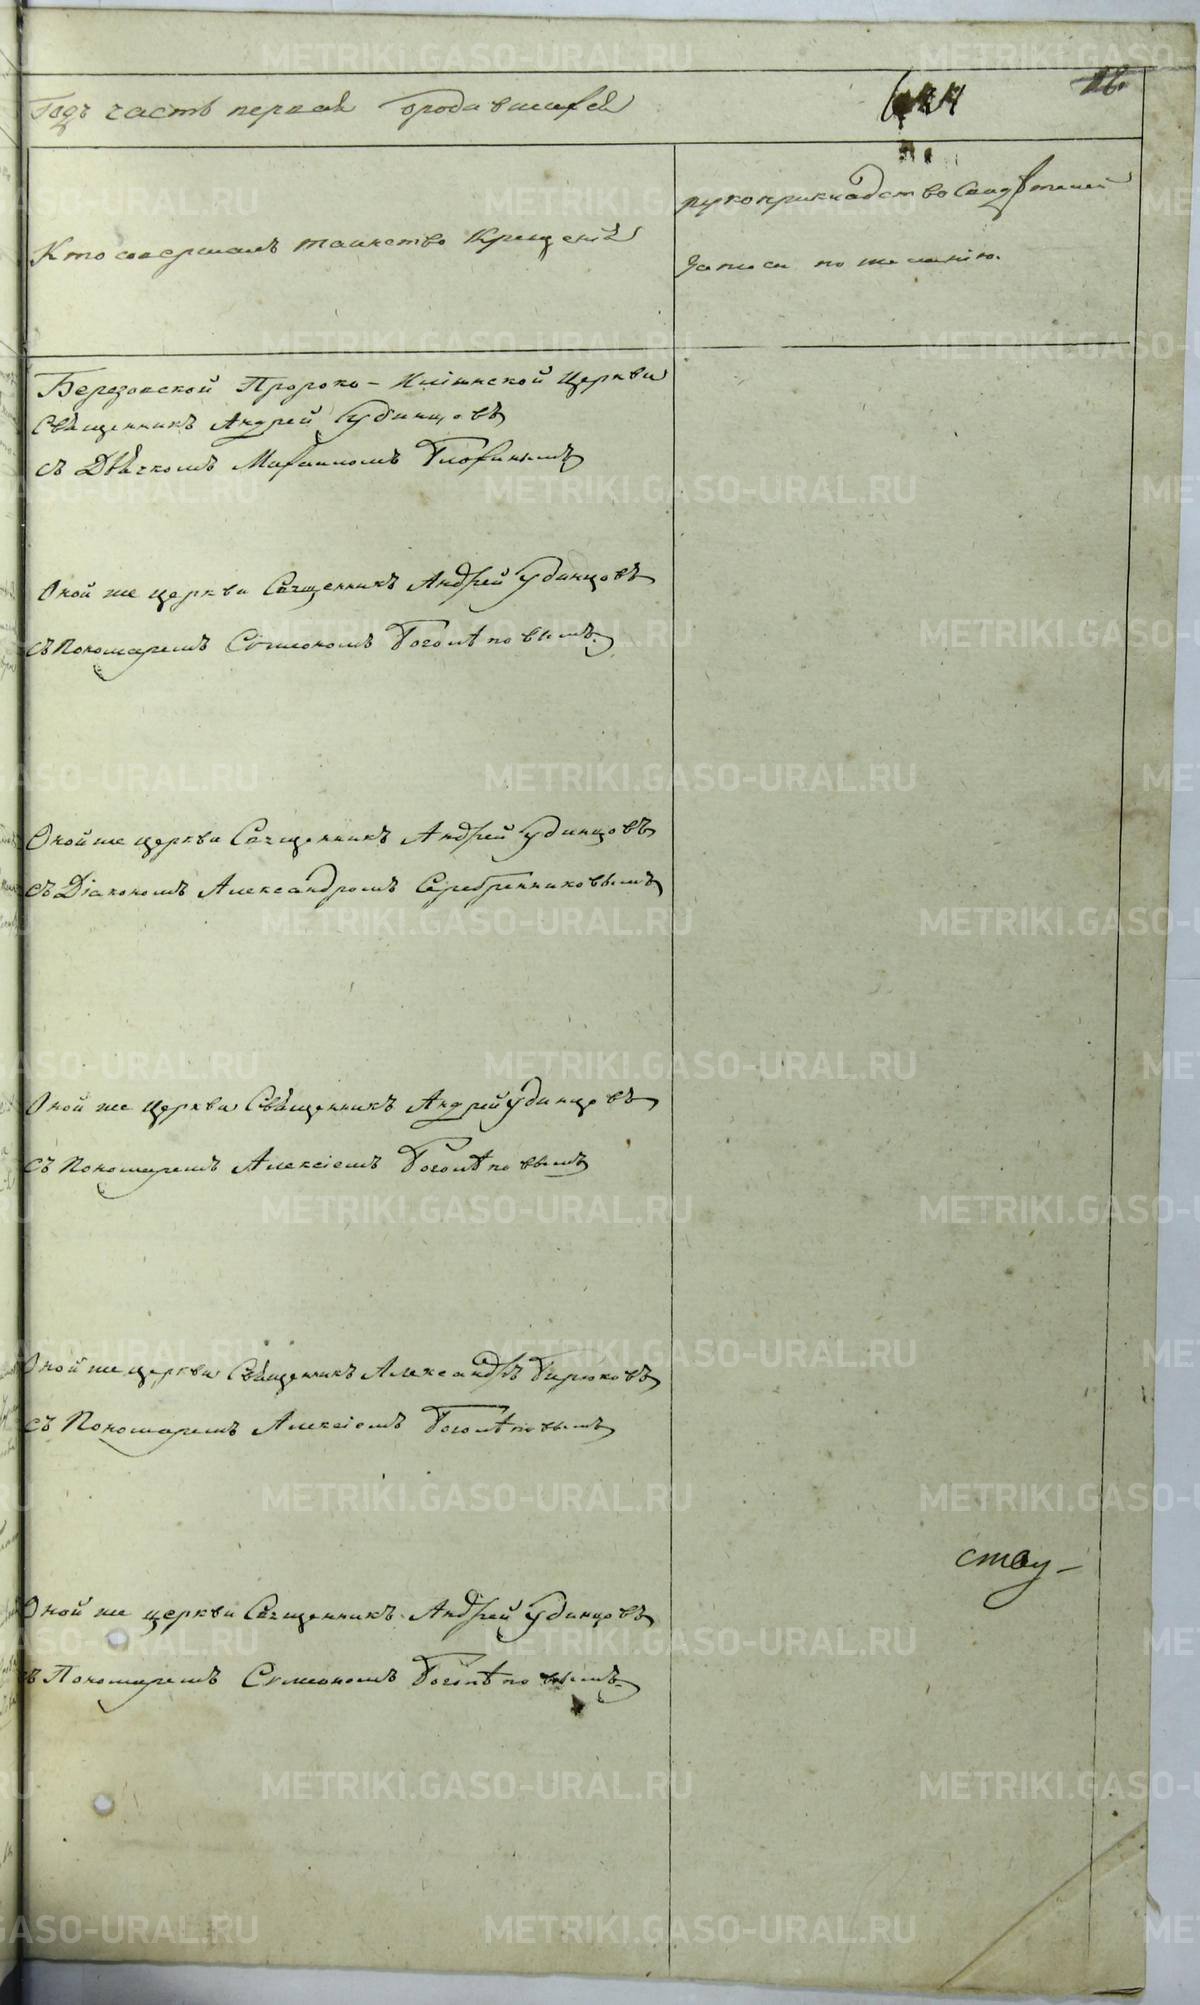 Годъ часть первая о родившихся
Кто совершалъ таинство Крещенія
рукоприкладство Свидѣтелей
записи по желанію.
Березовской Пророко-Ильинской Церкви
Священникъ Андрей Удинцовъ
съ Дьячкомъ
Оной же церкви Священникъ Андрей Удинцовъ
съ Пономаремъ Сѵмеономъ Боголѣповымъ.
Оной же церкви Священникъ Андрей Удинцовъ
съ Діакономъ Александромъ Серебренниковымъ
Оной же церкви Священникъ Андрей Удинцовъ
съ Пономаремъ Алексіемъ Боголѣповымъ
Оной же церкви Священникъ Александръ Бирюковъ
съ Пономаремъ Алексіемъ Боголѣповымъ
Оной же церкви Священникъ Андрей Удинцовъ
съ Пономаремъ Сѵмеономъ Боголѣповымъ.
METRIKI.GASO-URAL.RU